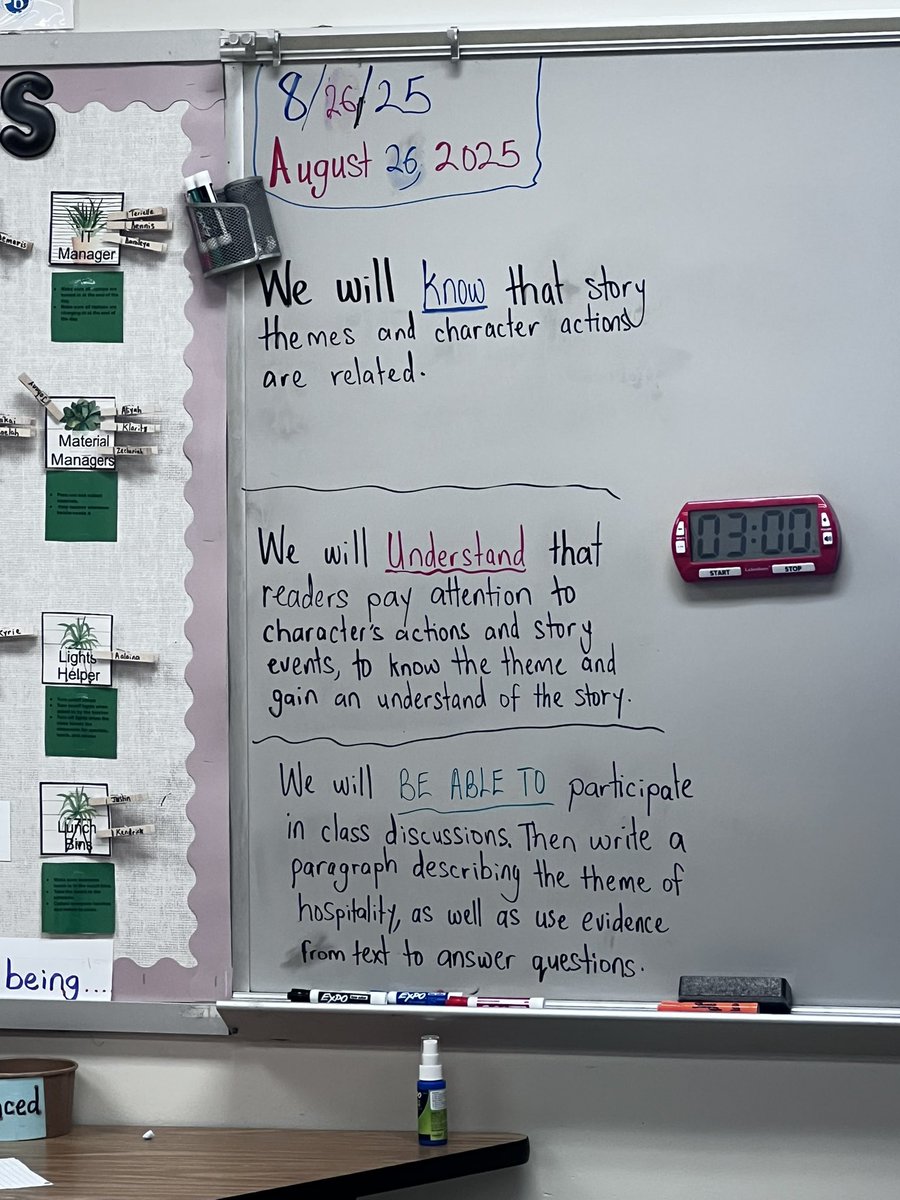 S
8/26/25
August 26, 2025
IT
Manager
Terielle
Material
Managers
August
Aliyah
Klarity
Zechariah
Lights
Helper
Lunch
Bins
Justin
Kendrick
being...
We will know that story
themes and character actions
are related.
We will Understand that
readers pay attention to
character's actions and story
events, to know the theme and
gain an understand of the story.
03:00
START
STOP
We will BE ABLE TO participate
in class discussions. Then write a
paragraph describing the theme of
hospitality, as well as use evidence
from text to answer questions.
EXPO
EXPO